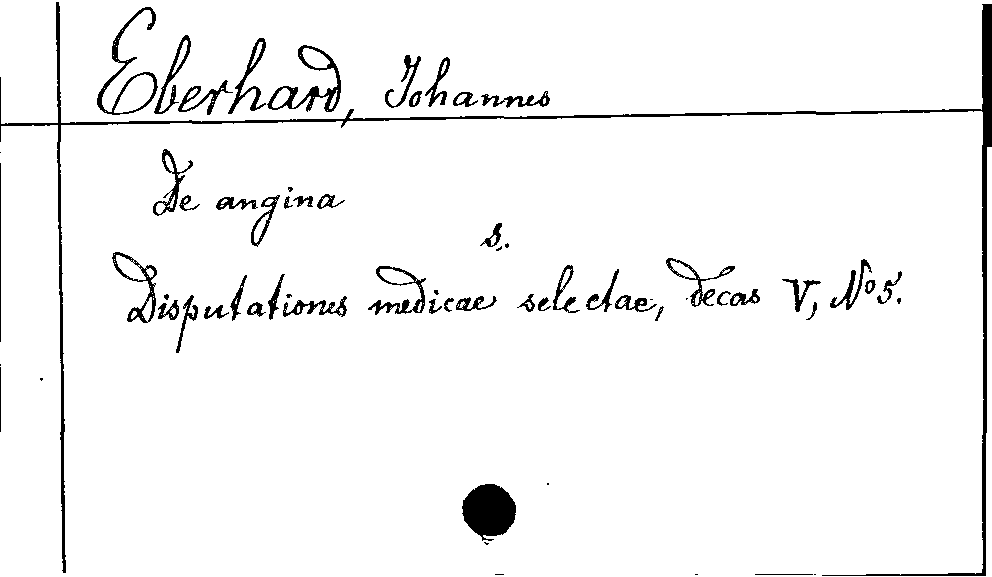 Eberhard, Johannes
De angina
s.
Disputationes medicae selectae, decas V, No 5.